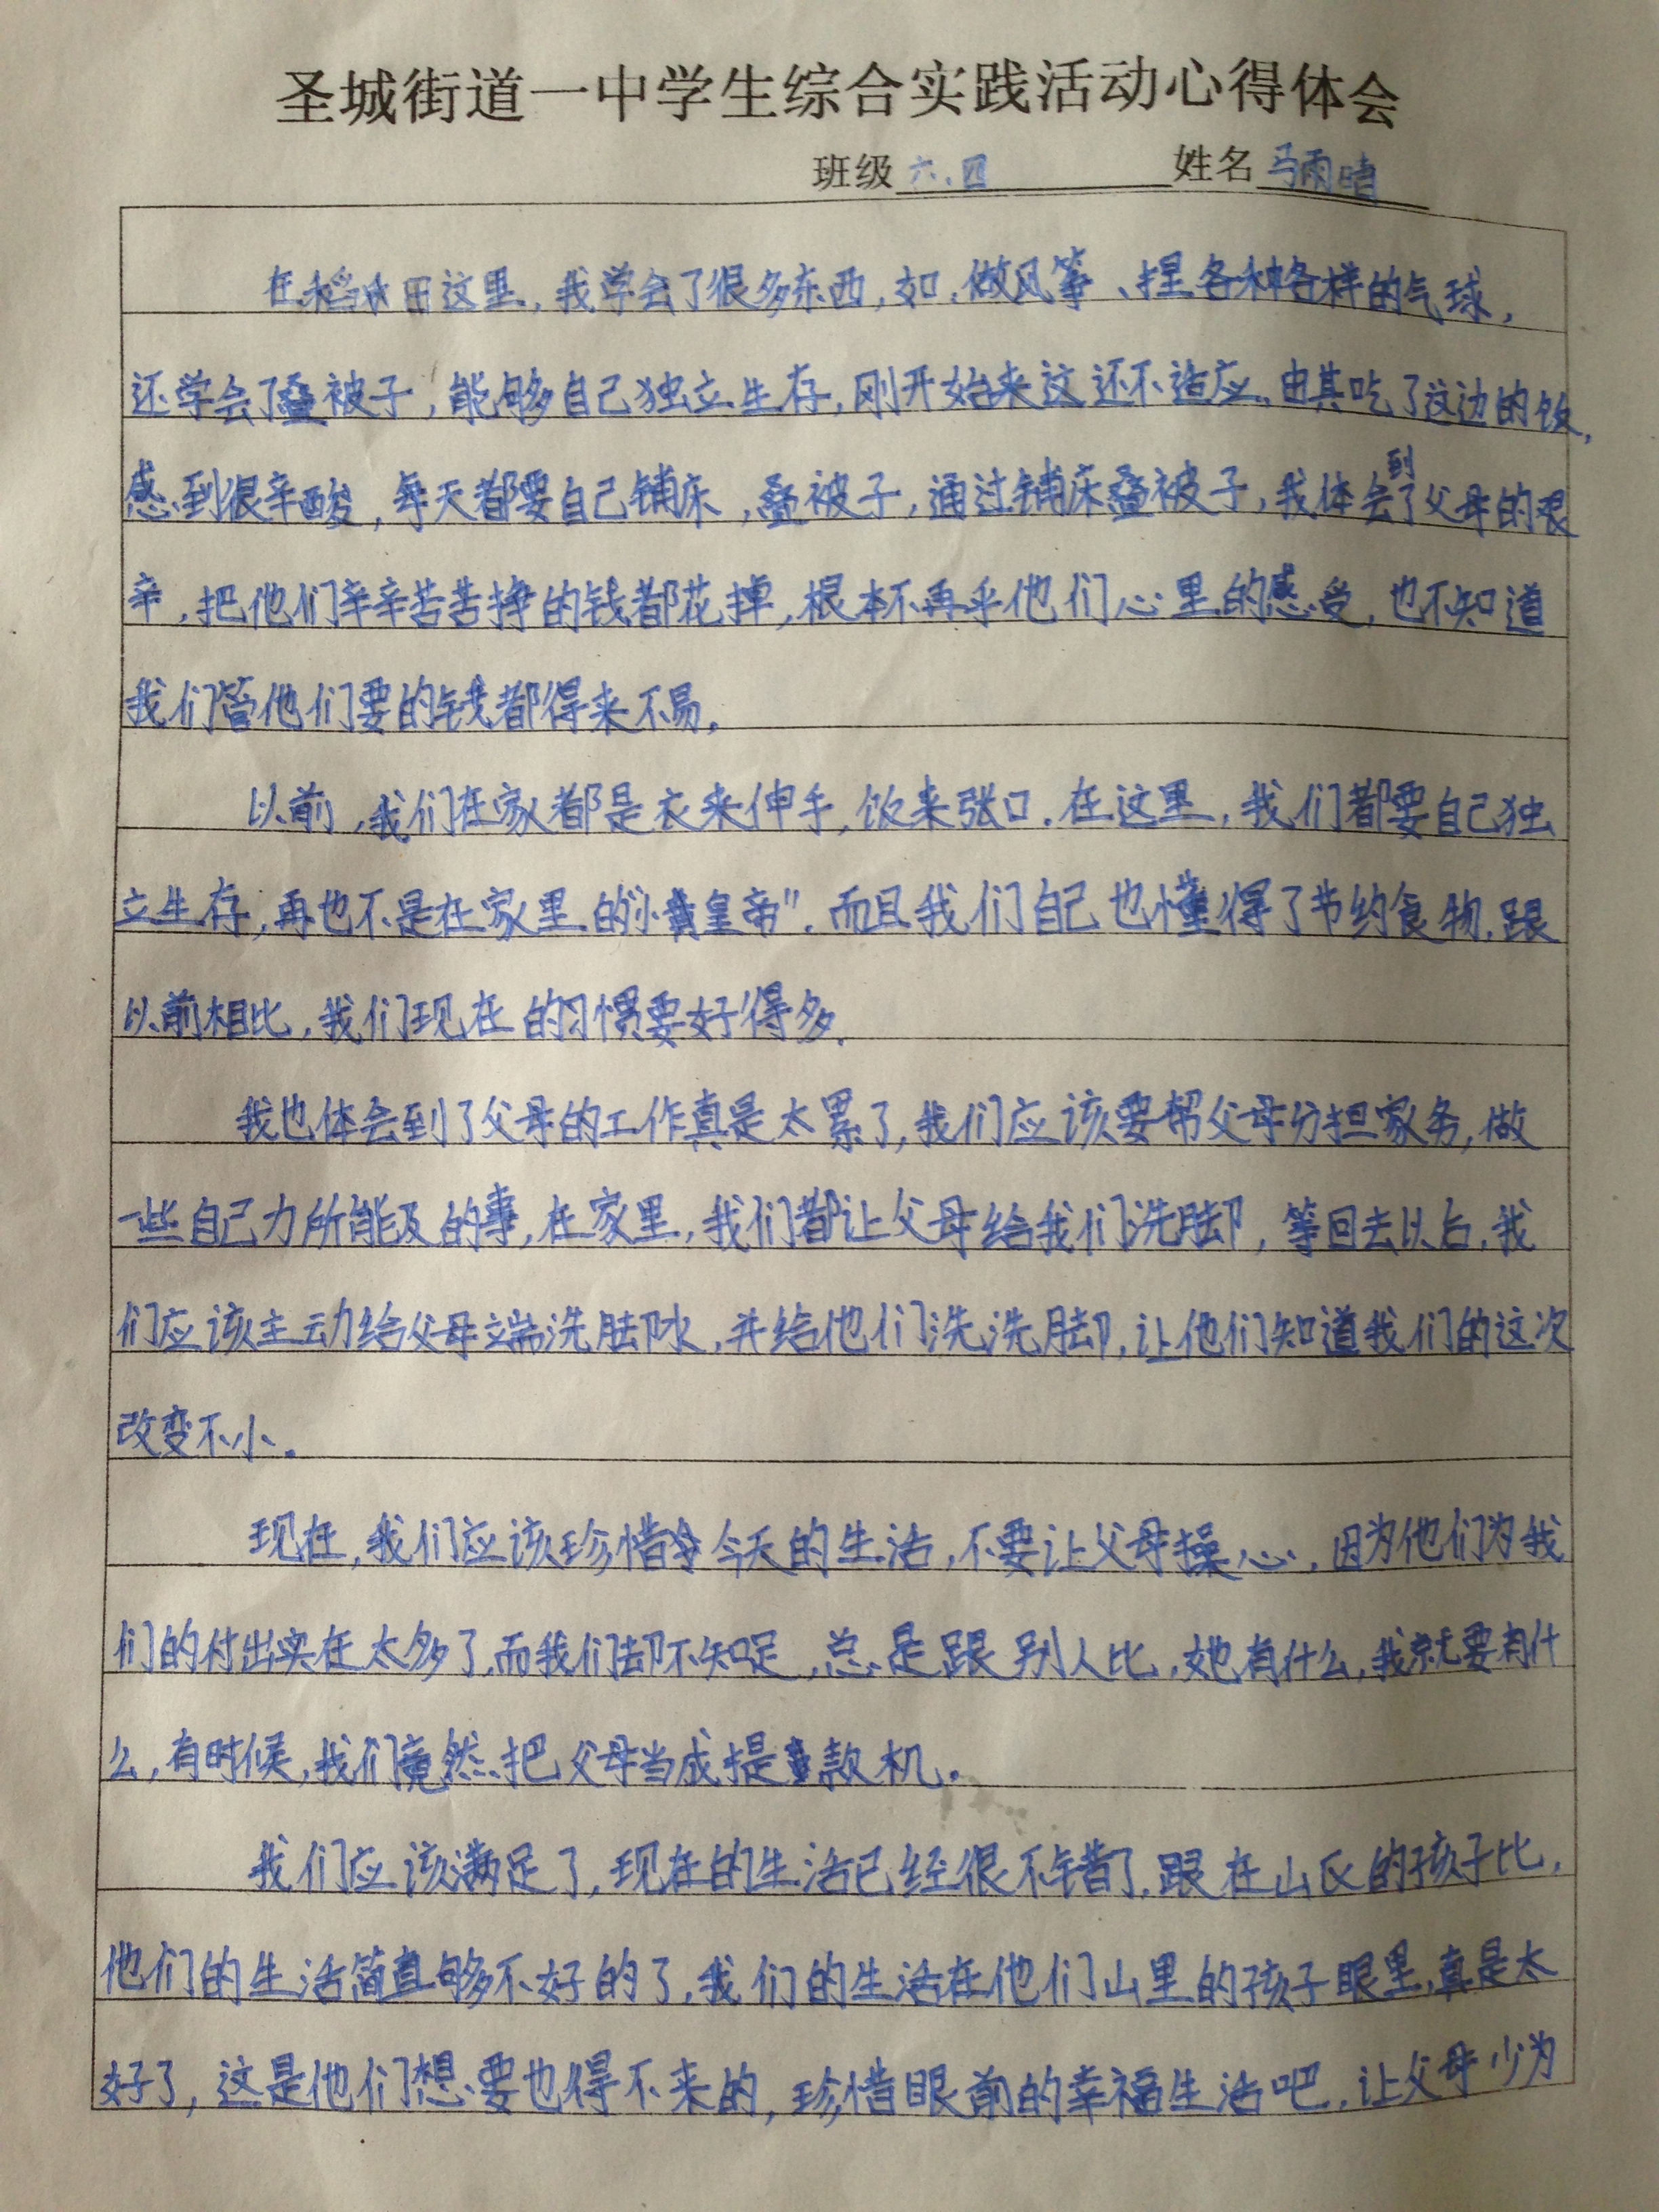 圣城街道一中学生综合实践活动心得体会
班级 六.四 姓名 马雨晴
在稻田这里,我学会了很多东西,如,做风筝、捏各种各样的气球,
还学会了叠被子,能够自己独立生存,刚开始来这还不适应,由其吃了这边的饭,
感到很辛酸,每天都要自己铺床,叠被子,通过铺床叠被子,我体会到了父母的艰
辛,把他们辛辛苦苦挣的钱都花掉,根本不再乎他们心里的感受,也不知道
我们管他们要的钱都得来不易。
以前,我们在家都是衣来伸手,饭来张口.在这里,我们都要自己独
立生存,再也不是在家里的"小皇帝".而且我们自己也懂得了节约食物.跟
以前相比,我们现在的习惯要好得多.
我也体会到了父母的工作真是太累了,我们应该要帮父母分担家务,做
一些自己力所能及的事,在家里,我们都让父母给我们洗脚,等回去以后,我
们应该主动给父母端洗脚水,并给他们洗洗脚,让他们知道我们的这次
改变不小。
现在,我们应该珍惜今天的生活,不要让父母操心,因为他们为我
们的付出实在太多了,而我们却不知足,总是跟别人比,她有什么,我就要有什
么,有时候,我们竟然把父母当成提款机。
我们应该满足了,现在的生活已经很不错了,跟在山区的孩子比,
他们的生活简直够不好的了,我们的生活在他们山里的孩子眼里,真是太
好了,这是他们想要也得不来的,珍惜眼前的幸福生活吧,让父母少为